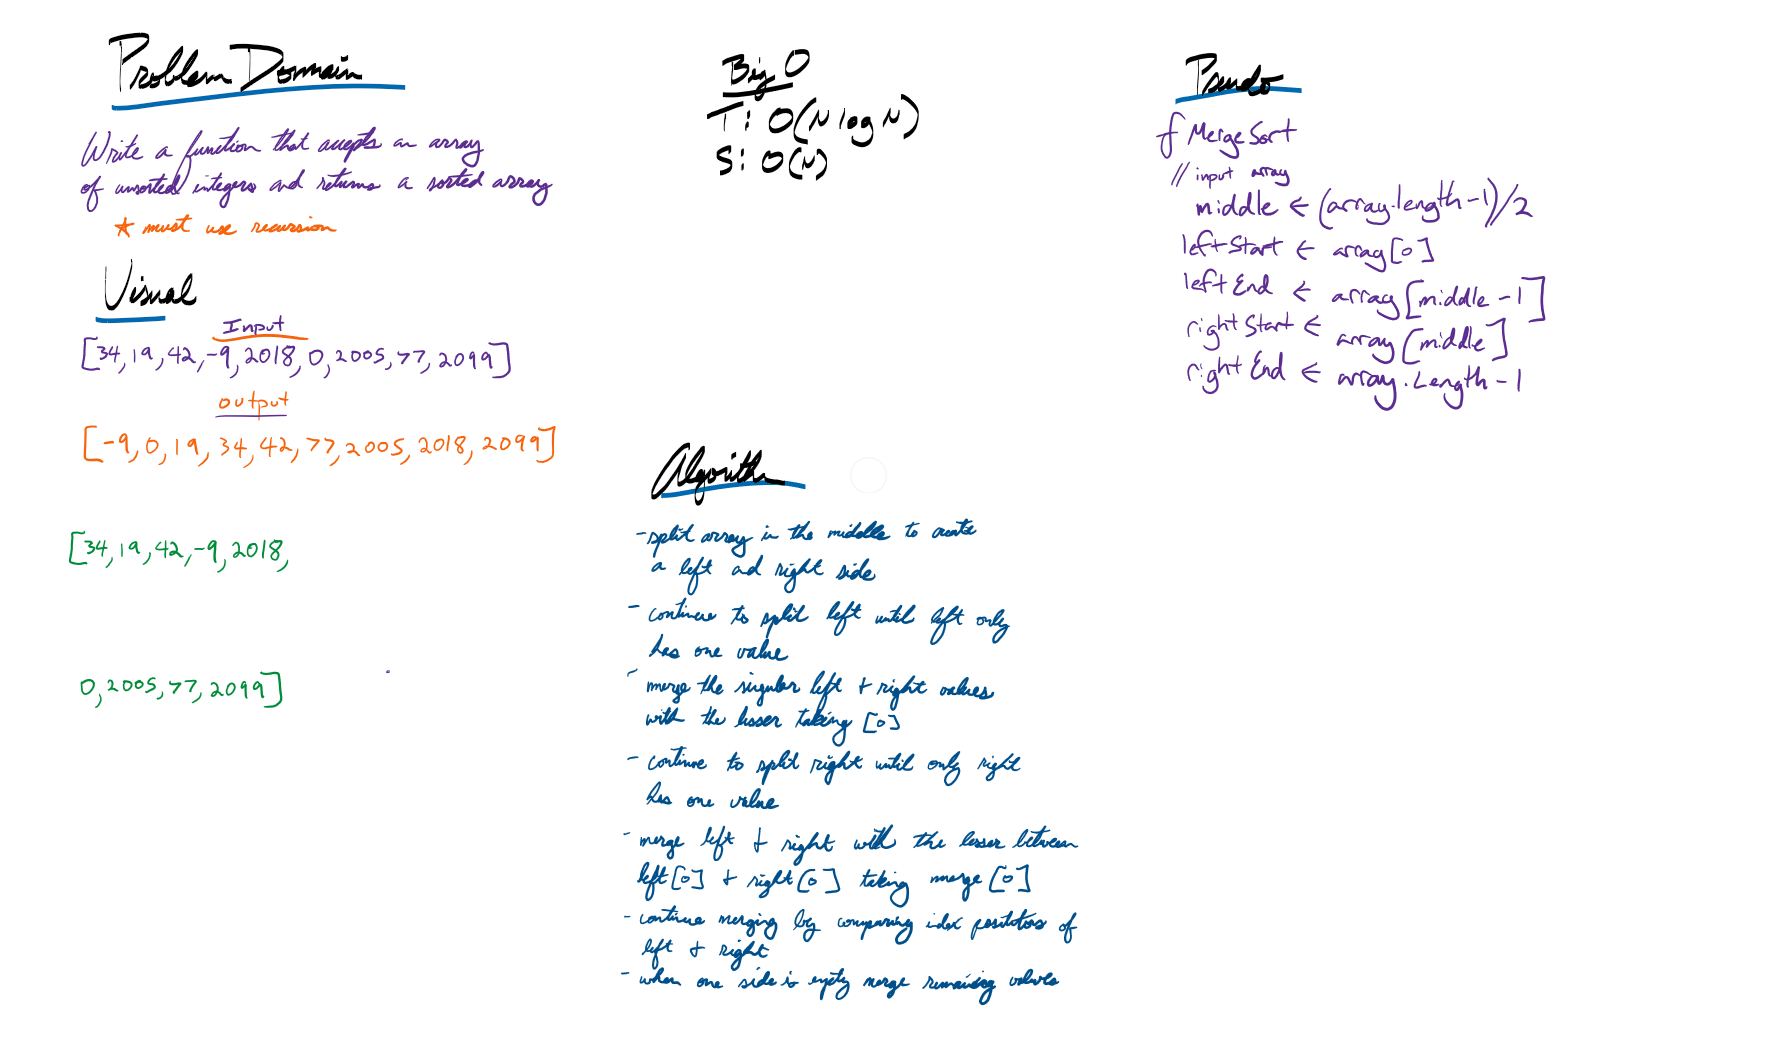 Problem Domain
Write a function that accepts an array
of unsorted integers and returns a sorted array
* must use recursion
Visual
Input
[34, 19, 42, -9, 2018, 0, 2005, 77, 2099]
output
[-9, 0, 19, 34, 42, 77, 2005, 2018, 2099]
[34, 19, 42, -9, 2018,
0, 2005, 77, 2099]
Big O
T: O(N log N)
S: O(N)
Algorith
- split array in the middle to create
a left ad right side
- continue to split left until left only
has one value
- merge the singular left + right values
with the lesser taking [0]
- continue to split right until only right
has one value
- merge left + right with the lesser between
left[0] + right[0] taking merge[0]
- continue merging by comparing index positions of
left + right
- when one side is empty merge remaining values
Pseudo
f MergeSort
// input array
middle ← (array.length - 1)/2
leftStart ← array[0]
leftEnd ← array[middle - 1]
rightStart ← array[middle]
rightEnd ← array.Length - 1